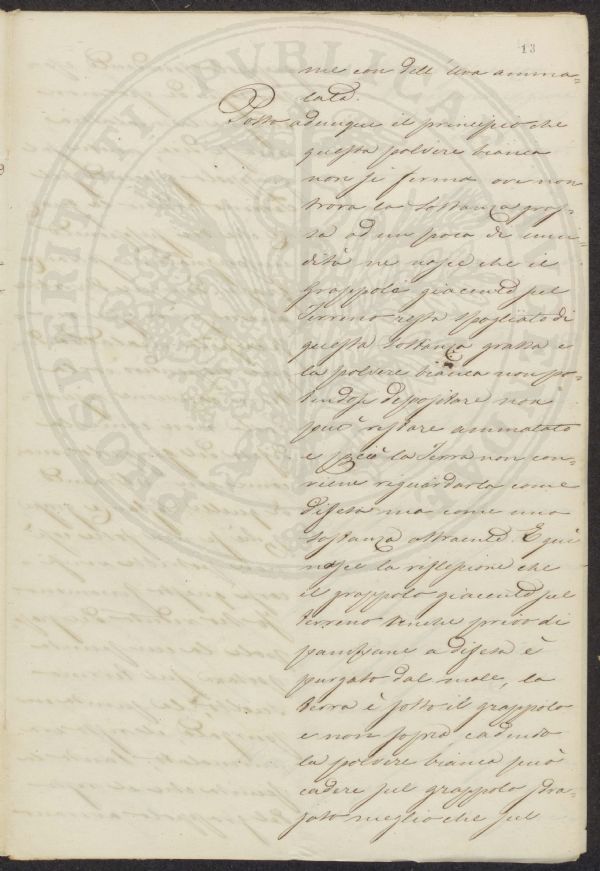 13
me con dell' uva amma-
lata.
Posto adunque il principio che
questa polvere bianca
non si ferma ove non
trova la sostanza gras-
sa ad un poca di umi-
dità ne nasce che il
Grappolo giacente sul
Terreno resta spogliato di
questa sostanza grassa e
la polvere bianca non po-
tendosi depositare non
può restare ammalato
e però la Terra non con-
viene riguardarla come
difesa ma come una
sostanza attraente. E qui
nasce la riflessione che
il grappolo giacente sul
terreno benché privo di
pampane a difesa è
purgato dal male, la
terra è sotto il grappolo
e non sopra cadendo
la polvere bianca può
cadere sul grappolo sdra-
jato meglio che sul
PROSPERITATI PVBLICAE AVGENDAE